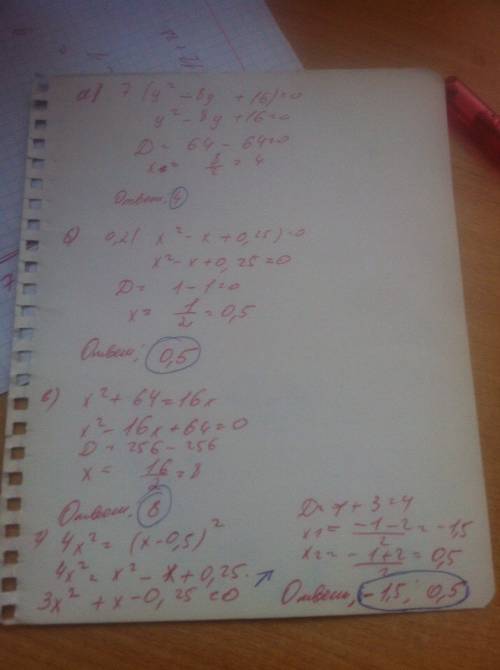 а) 7 (y² - 8y + 16) = 0
y² - 8y + 16 = 0
D = 64 - 64 = 0
x = 8/2 = 4
Ответ: 4
б) 0,2 ( x² - x + 0,25) = 0
x² - x + 0,25 = 0
D = 1 - 1 = 0
x = 1/2 = 0,5
Ответ: 0,5
в) x² + 64 = 16x
x² - 16x + 64 = 0
D = 256 - 256
x = 16/2 = 8
Ответ: 8
г) 4x² = (x - 0,5)²
4x² = x² - x + 0,25
3x² + x - 0,25 = 0
D = 1 + 3 = 4
x1 = -1-2/2 = -1,5
x2 = -1+2/2 = 0,5
Ответ: -1,5; 0,5